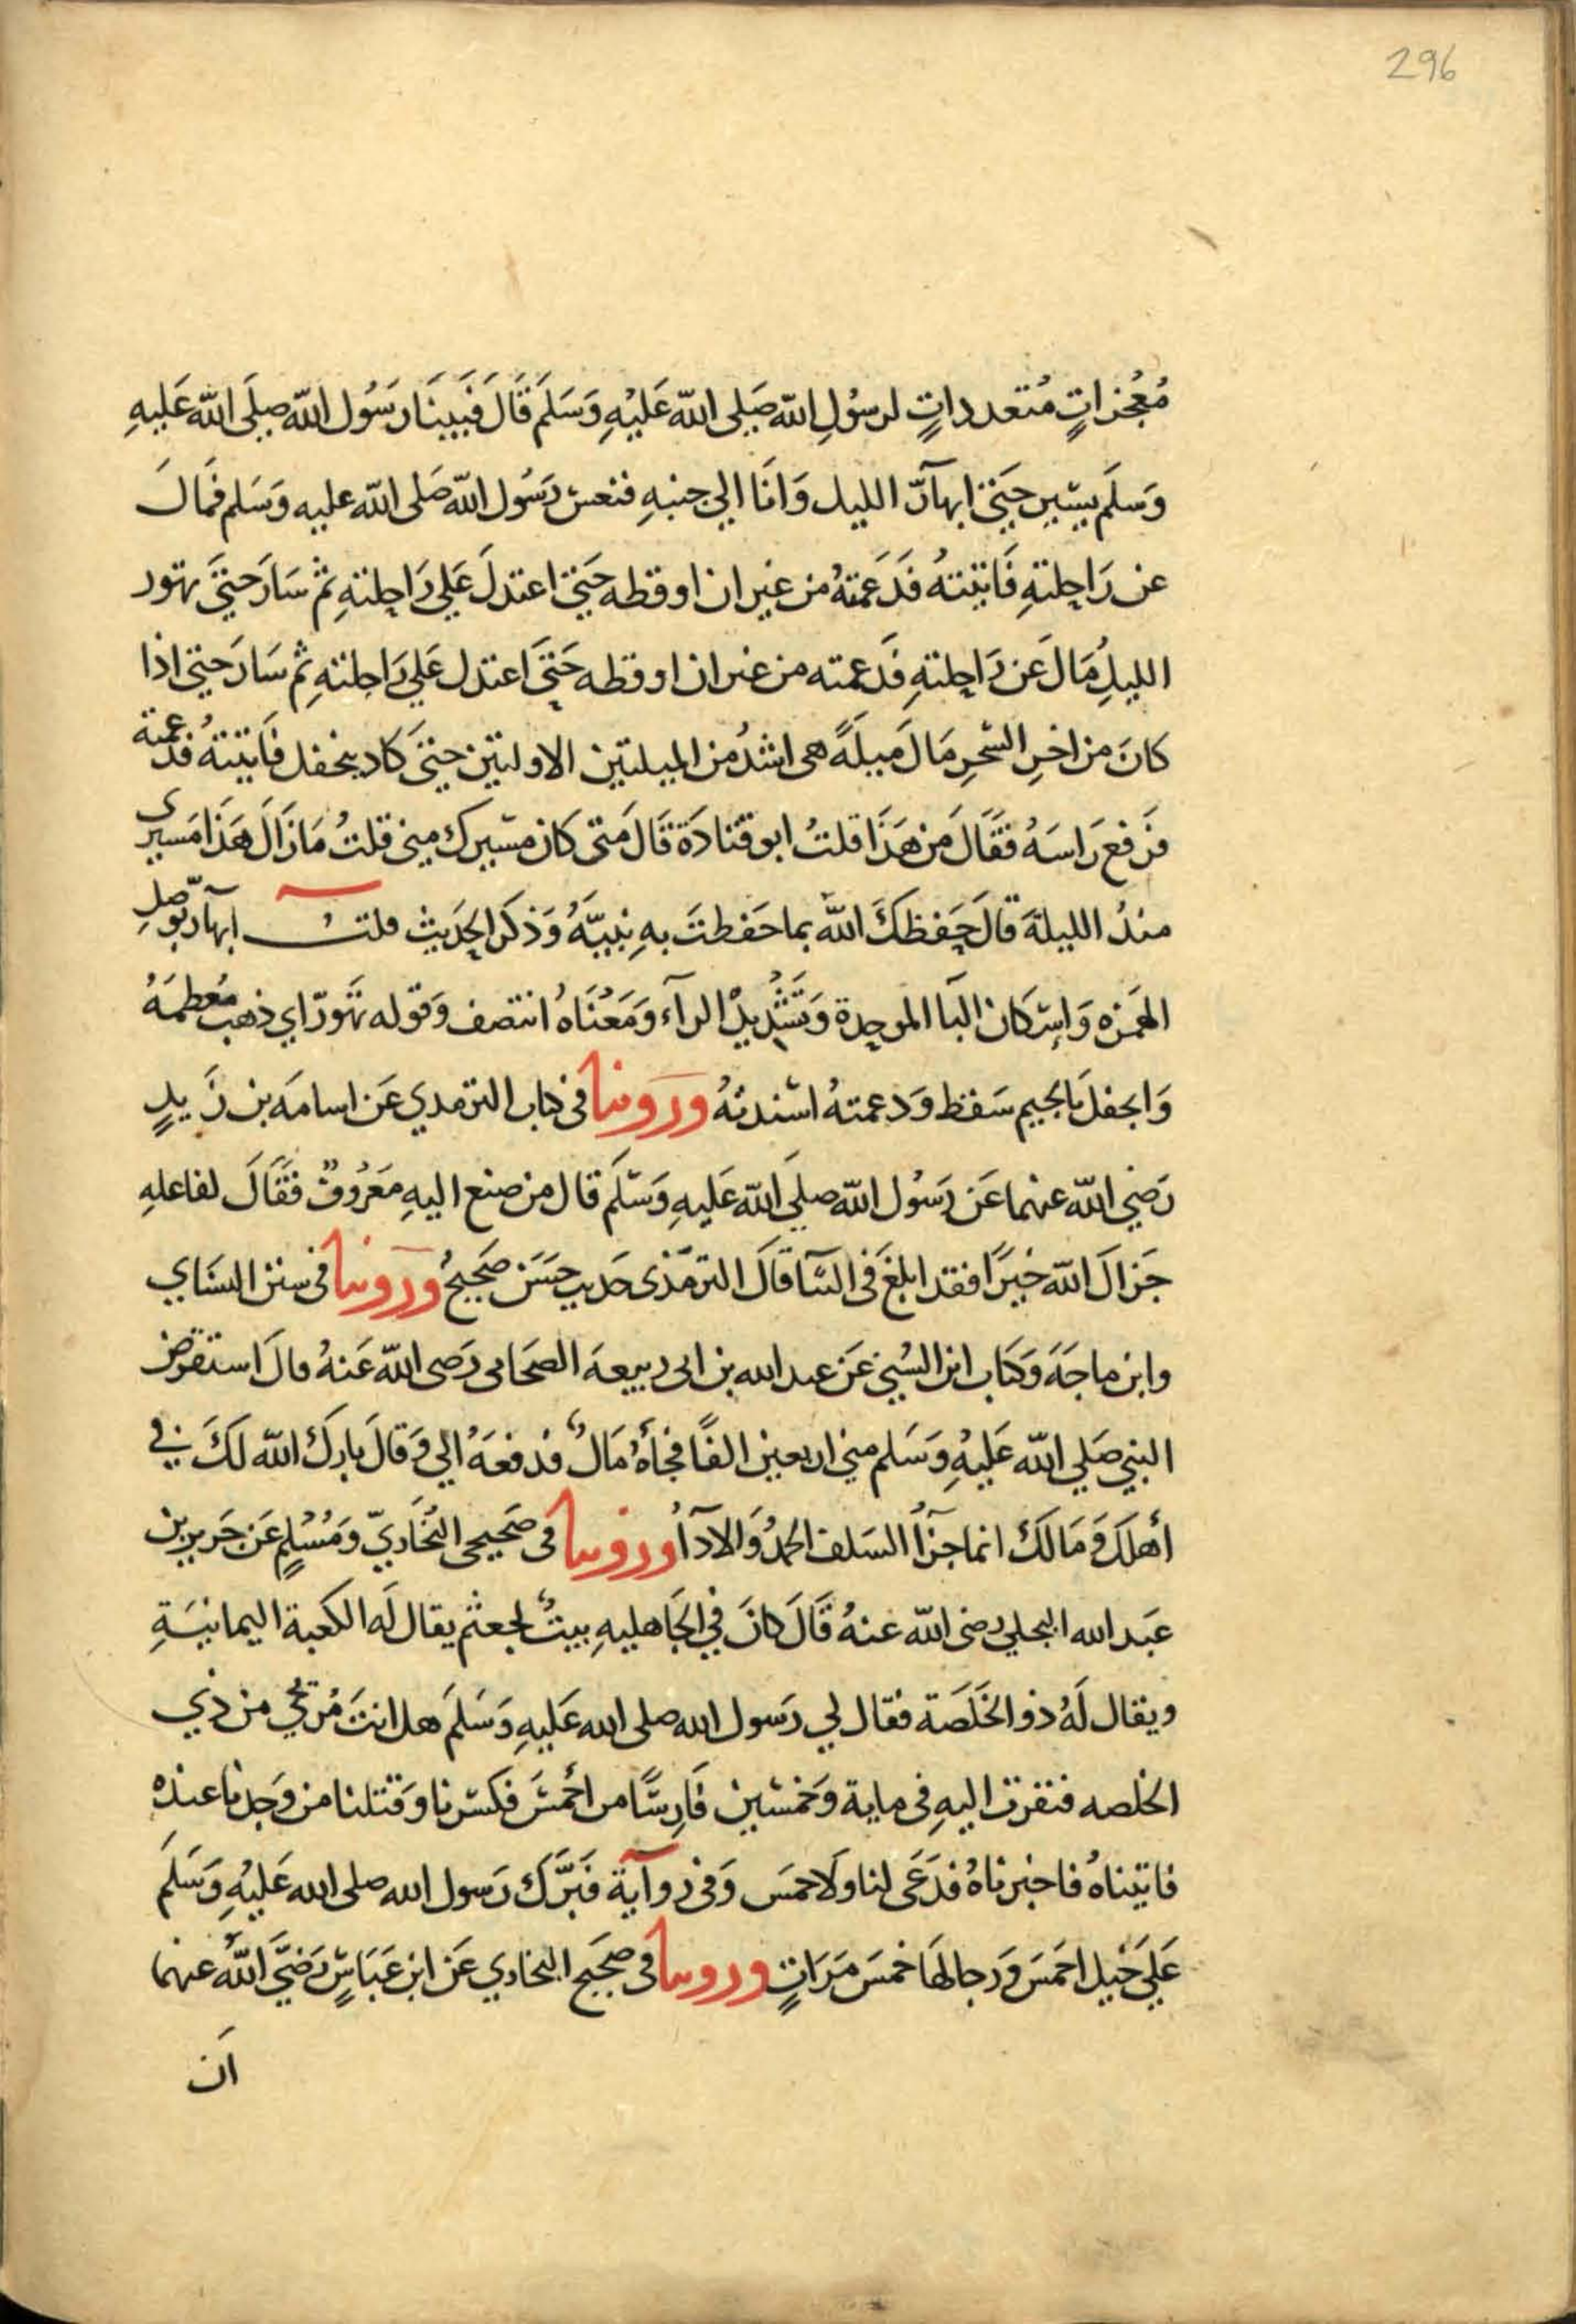 296
مُعْجزاتٍ مُتعدداتٍ لرسُولِ الله صَلى الله عَليْهِ وَسَلَم قَالَ فَبَينَا رَسُول الله صلى الله عَليهِ
وَسلَم يسير حَتىَ ابهآرّ الليل وَانَا الي جنبهِ فنعسَ رَسُول الله صَلى الله عليه وَسَلم فمَالَ
عن رَاحلتهِ فَاتيتهُ فَدَعمتهُ من غير ان اوقطه حَتىَ اعتدلَ عَلي رَاحلتهِ ثم سَارَ حتىَ تهور
الليلُ مَالَ عَن رَاحلتهِ فَدَعمته من غير ان اوقطه حَتىَ اعتدل عَلي رَاحلتهِ ثم سَارَ حتى اذا
كانَ من اخرِ السَّحرِ مَالَ مَيلَةً هى اشدُ من الميلتين الاولتين حتىَ كاد ينجفل فَاتيتهُ فدعمته
فرَفع رَاسَهُ فقَالَ مَن هَذَا قلتُ ابو قتَادَة قَالَ مَتى كان مسَيرك مني قلتُ مَا زَالَ هَذَا مَسيري
منذُ الليلةَ قالَ حَفظكَ الله بما حَفظتَ بهِ نبيَّهُ وَذكر الحَديث قلت ابهآر بوَصلِ
الهَمزه وَاسكان البَا الموحدة وَتَشْديدْ الرآء وَمَعْنَاهُ انتصف وَقوله تهَورّ اي ذهبَ مُعظمَهُ
وَانجفلَ بالجيم سَقط وَدعمتهُ اسْندتهُ ورَوينا في كتاب الترمدي عَن اسامَه بن زَيدٍ
رَضي الله عنهما عَن رَسُول الله صلى الله عَليهِ وَسَلم قال من صنع اليهِ مَعرُوفٌ فقَالَ لفاعلهِ
جَزاكَ الله خيرًا فقد ابلغَ في الثنآ قَالَ الترمَذى حَديث حَسَن صَحيحُ ورَوينا في سنن النسَاي
وابن ماجَةَ وَكتاب ابن السُني عَن عبد الله بن ابى ربيعهَ الصَحابى رَضى الله عَنهُ قالَ استقرض
النبي صَلي الله عَليْهِ وَسَلم مني اربعين الفًا فجَاهُ مَالٌ فدَفعَهُ الي وَقالَ باركَ الله لكَ في
أهلكَ وَمَالكَ انما جزآُ السَلف الحمدُ وَالادآُ ورَوينا في صَحيحي البُخَاريّ وَمُسْلمٍ عَن جَرير بن
عَبد الله البجلي رضى الله عنهُ قَالَ كانَ في الجَاهليهِ بيتٌ لجعثم يقال لَه الكَعبة اليمانيَةِ
ويقال لَهُ ذو الخَلَصَة فقال لي رَسول الله صلى الله عَليهِ وَسَلمَ هل انتَ مُرِيحي من ذي
الخلصه فنفرت اليهِ في ماية وَخمسين فَارسًا من احْمسَ فكسَرنا وَقتلنا من وَجدنا عندَه
فاتيناهُ فاخبرناهُ فدَعَى لنا ولاحمسَ وَفي روآية فَبَرَّكَ رَسول الله صلى الله عَليْهِ وَسَلمَ
عَلي خَيل احمَسَ وَرجالهَا خمسَ مَرَاتٍ ورَوينا في صحَيح البخاري عَن ابن عَبَاسٍ رَضيَ الله عنهما
اَن